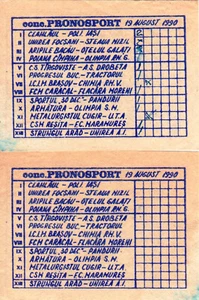 conc. PRONOSPORT 19 AUGUST 1990
I CEAHLĂUL - POLI IAȘI
II UNIREA FOCȘANI - STEAUA MIZIL
III ARIPILE BACĂU - OȚELUL GALAȚI
IV POIANA CÎMPINA - OLIMPIA RM. S.
V C.S. TÎRGOVIȘTE - A.S. DROBETA
VI PROGRESUL BUC. - TRACTORUL
VII I.C.I.M. BRAȘOV - CHIMIA RM. V.
VIII FCM CARACAL - FLACĂRA MORENI
IX SPORTUL "30 DEC." - PANDURII
X ARMĂTURA - OLIMPIA S.M.
XI METALURGISTUL CUGIR - U.T.A
XII CSM REȘIȚA - F.C. MARAMUREȘ
XIII STRUNGUL ARAD - UNIREA A.I.
conc. PRONOSPORT 19 AUGUST 1990
I CEAHLĂUL - POLI IAȘI
II UNIREA FOCȘANI - STEAUA MIZIL
III ARIPILE BACĂU - OȚELUL GALAȚI
IV POIANA CÎMPINA - OLIMPIA RM. S.
V C.S. TÎRGOVIȘTE - A.S. DROBETA
VI PROGRESUL BUC. - TRACTORUL
VII I.C.I.M. BRAȘOV - CHIMIA RM. V.
VIII FCM CARACAL - FLACĂRA MORENI
IX SPORTUL "30 DEC." - PANDURII
X ARMĂTURA - OLIMPIA S.M.
XI METALURGISTUL CUGIR - U.T.A
XII CSM REȘIȚA - F.C. MARAMUREȘ
XIII STRUNGUL ARAD - UNIREA A.I.